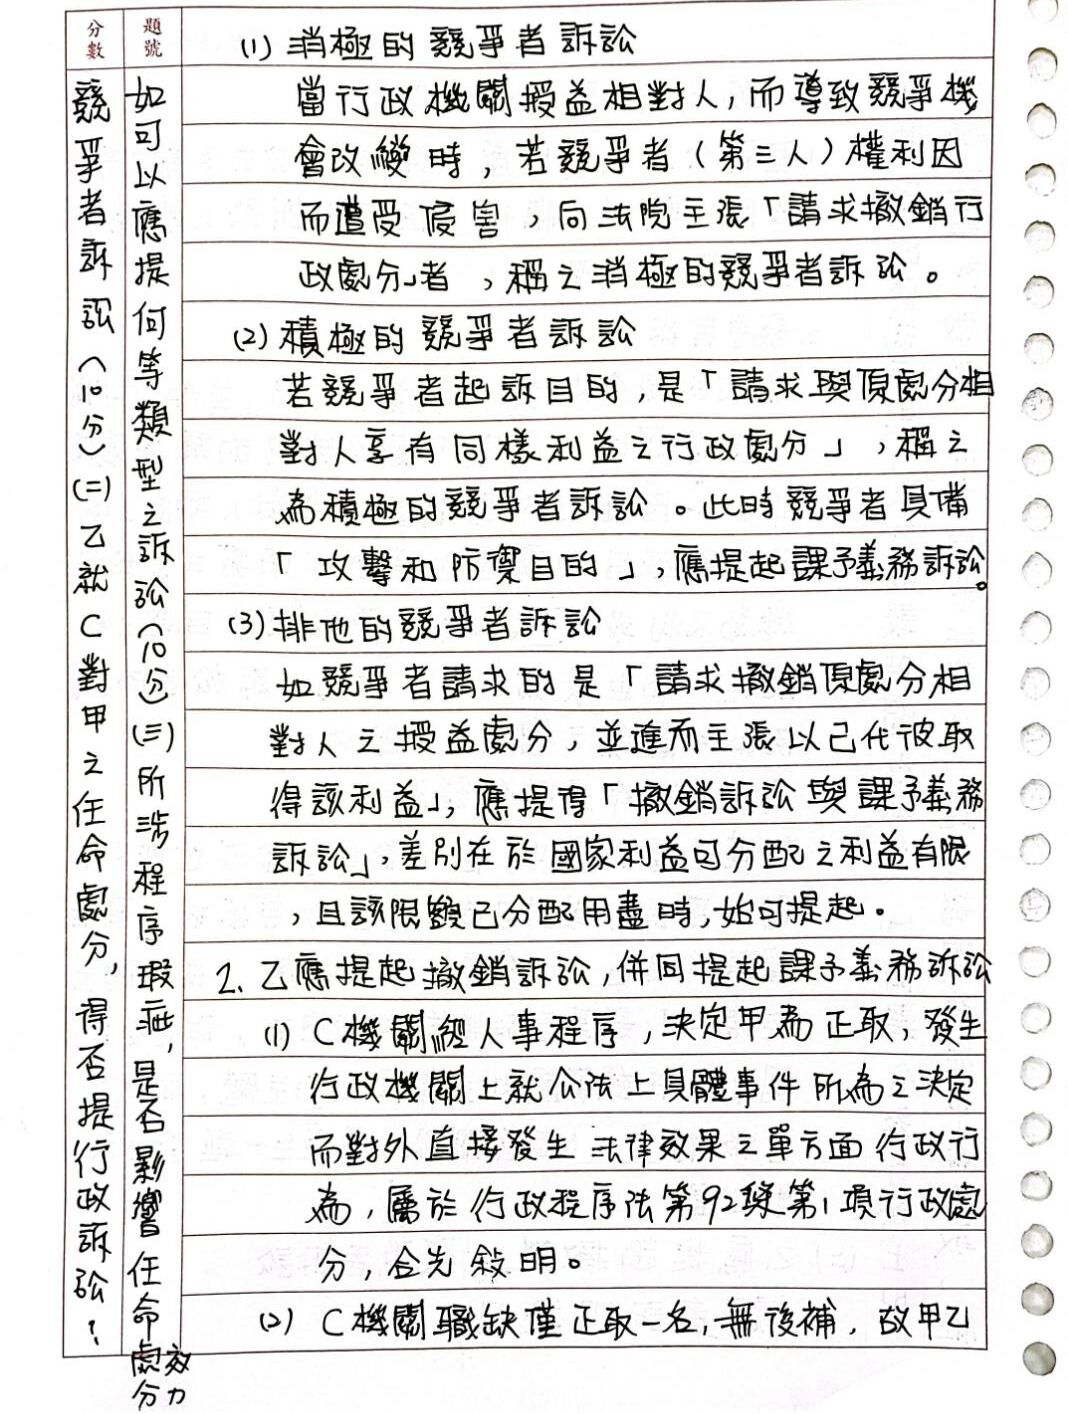 分數
題號
競爭者訴訟(10分)(二)乙就C對甲之任命處分,得否提行政訴訟?
如可以應提何等類型之訴訟(10分)(三)所涉程序瑕疵,是否影響任命處分效力
(1) 消極的競爭者訴訟
當行政機關授益相對人,而導致競爭機
會改變時,若競爭者(第三人)權利因
而遭受侵害,向法院主張「請求撤銷行
政處分」者,稱之消極的競爭者訴訟。
(2) 積極的競爭者訴訟
若競爭者起訴目的,是「請求與原處分相
對人享有同樣利益之行政處分」,稱之
為積極的競爭者訴訟。此時競爭者具備
「攻擊和防禦目的」,應提起課予義務訴訟。
(3) 排他的競爭者訴訟
如競爭者請求的是「請求撤銷原處分相
對人之授益處分,並進而主張以己代彼取
得該利益」,應提得「撤銷訴訟與課予義務
訴訟」,差別在於國家利益可分配之利益有限
,且該限額已分配用盡時,始可提起。
2. 乙應提起撤銷訴訟,併同提起課予義務訴訟
(1) C機關經人事程序,決定甲為正取,發生
行政機關上就公法上具體事件所為之決定
而對外直接發生法律效果之單方面行政行
為,屬於行政程序法第92條第1項行政處
分,合先敘明。
(2) C機關職缺僅正取一名,無後補,故甲乙